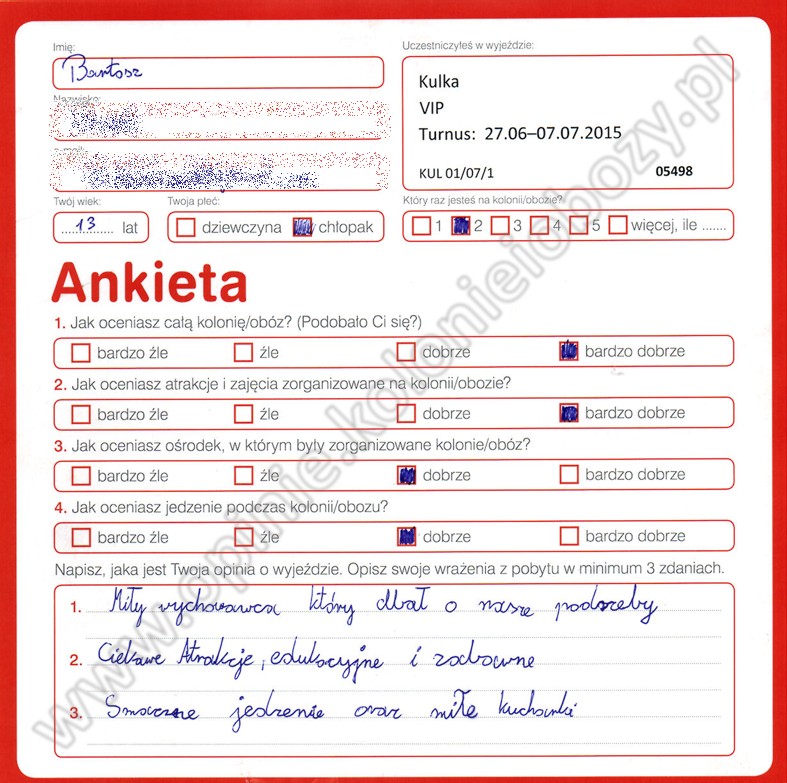 Imię:
Uczestniczyłeś w wyjeździe:
Bartosz
Kulka
VIP
Turnus: 27.06–07.07.2015
KUL 01/07/1 05498
Nazwisko:
e-mail:
Twój wiek: Twoja płeć: Który raz jesteś na kolonii/obozie?
13 lat dziewczyna chłopak 1 2 3 4 5 więcej, ile .......
Ankieta
1. Jak oceniasz całą kolonię/obóz? (Podobało Ci się?)
bardzo źle źle dobrze bardzo dobrze
2. Jak oceniasz atrakcje i zajęcia zorganizowane na kolonii/obozie?
bardzo źle źle dobrze bardzo dobrze
3. Jak oceniasz ośrodek, w którym były zorganizowane kolonie/obóz?
bardzo źle źle dobrze bardzo dobrze
4. Jak oceniasz jedzenie podczas kolonii/obozu?
bardzo źle źle dobrze bardzo dobrze
Napisz, jaka jest Twoja opinia o wyjeździe. Opisz swoje wrażenia z pobytu w minimum 3 zdaniach.
1. Miły wychowawca który dbał o nasze podrzeby
2. Ciekawe Atrakcje, edukacyjne i zabawne
3. Smaczne jedzenie oraz miłe kucharki
www.opinie.kolonieiobozy.pl